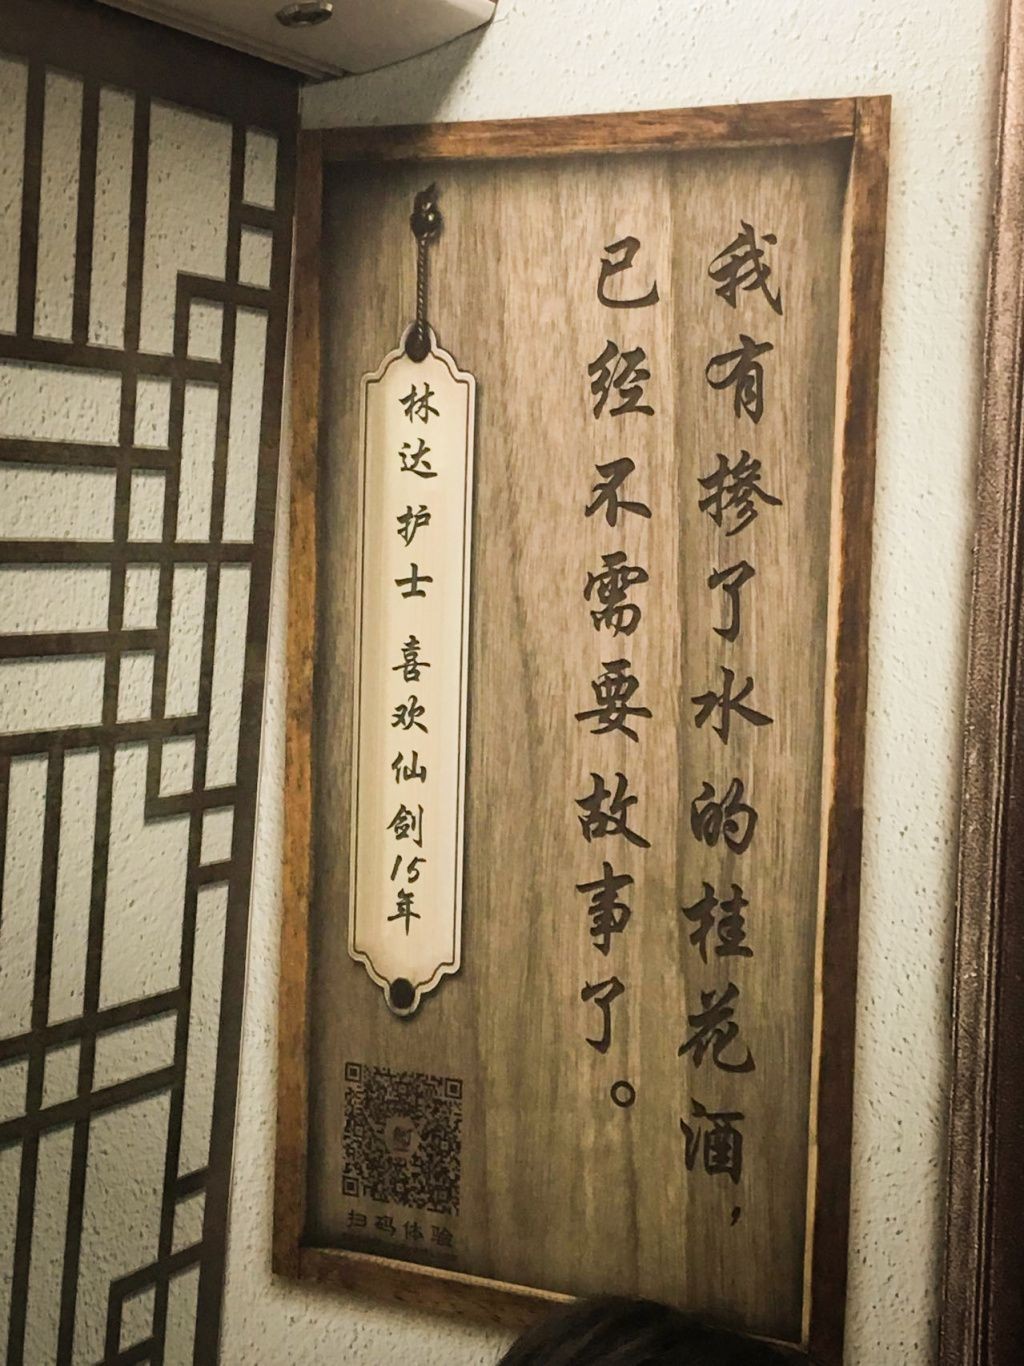 我有掺了水的桂花酒，
已经不需要故事了。
林达 护士 喜欢仙剑15年
扫码体验